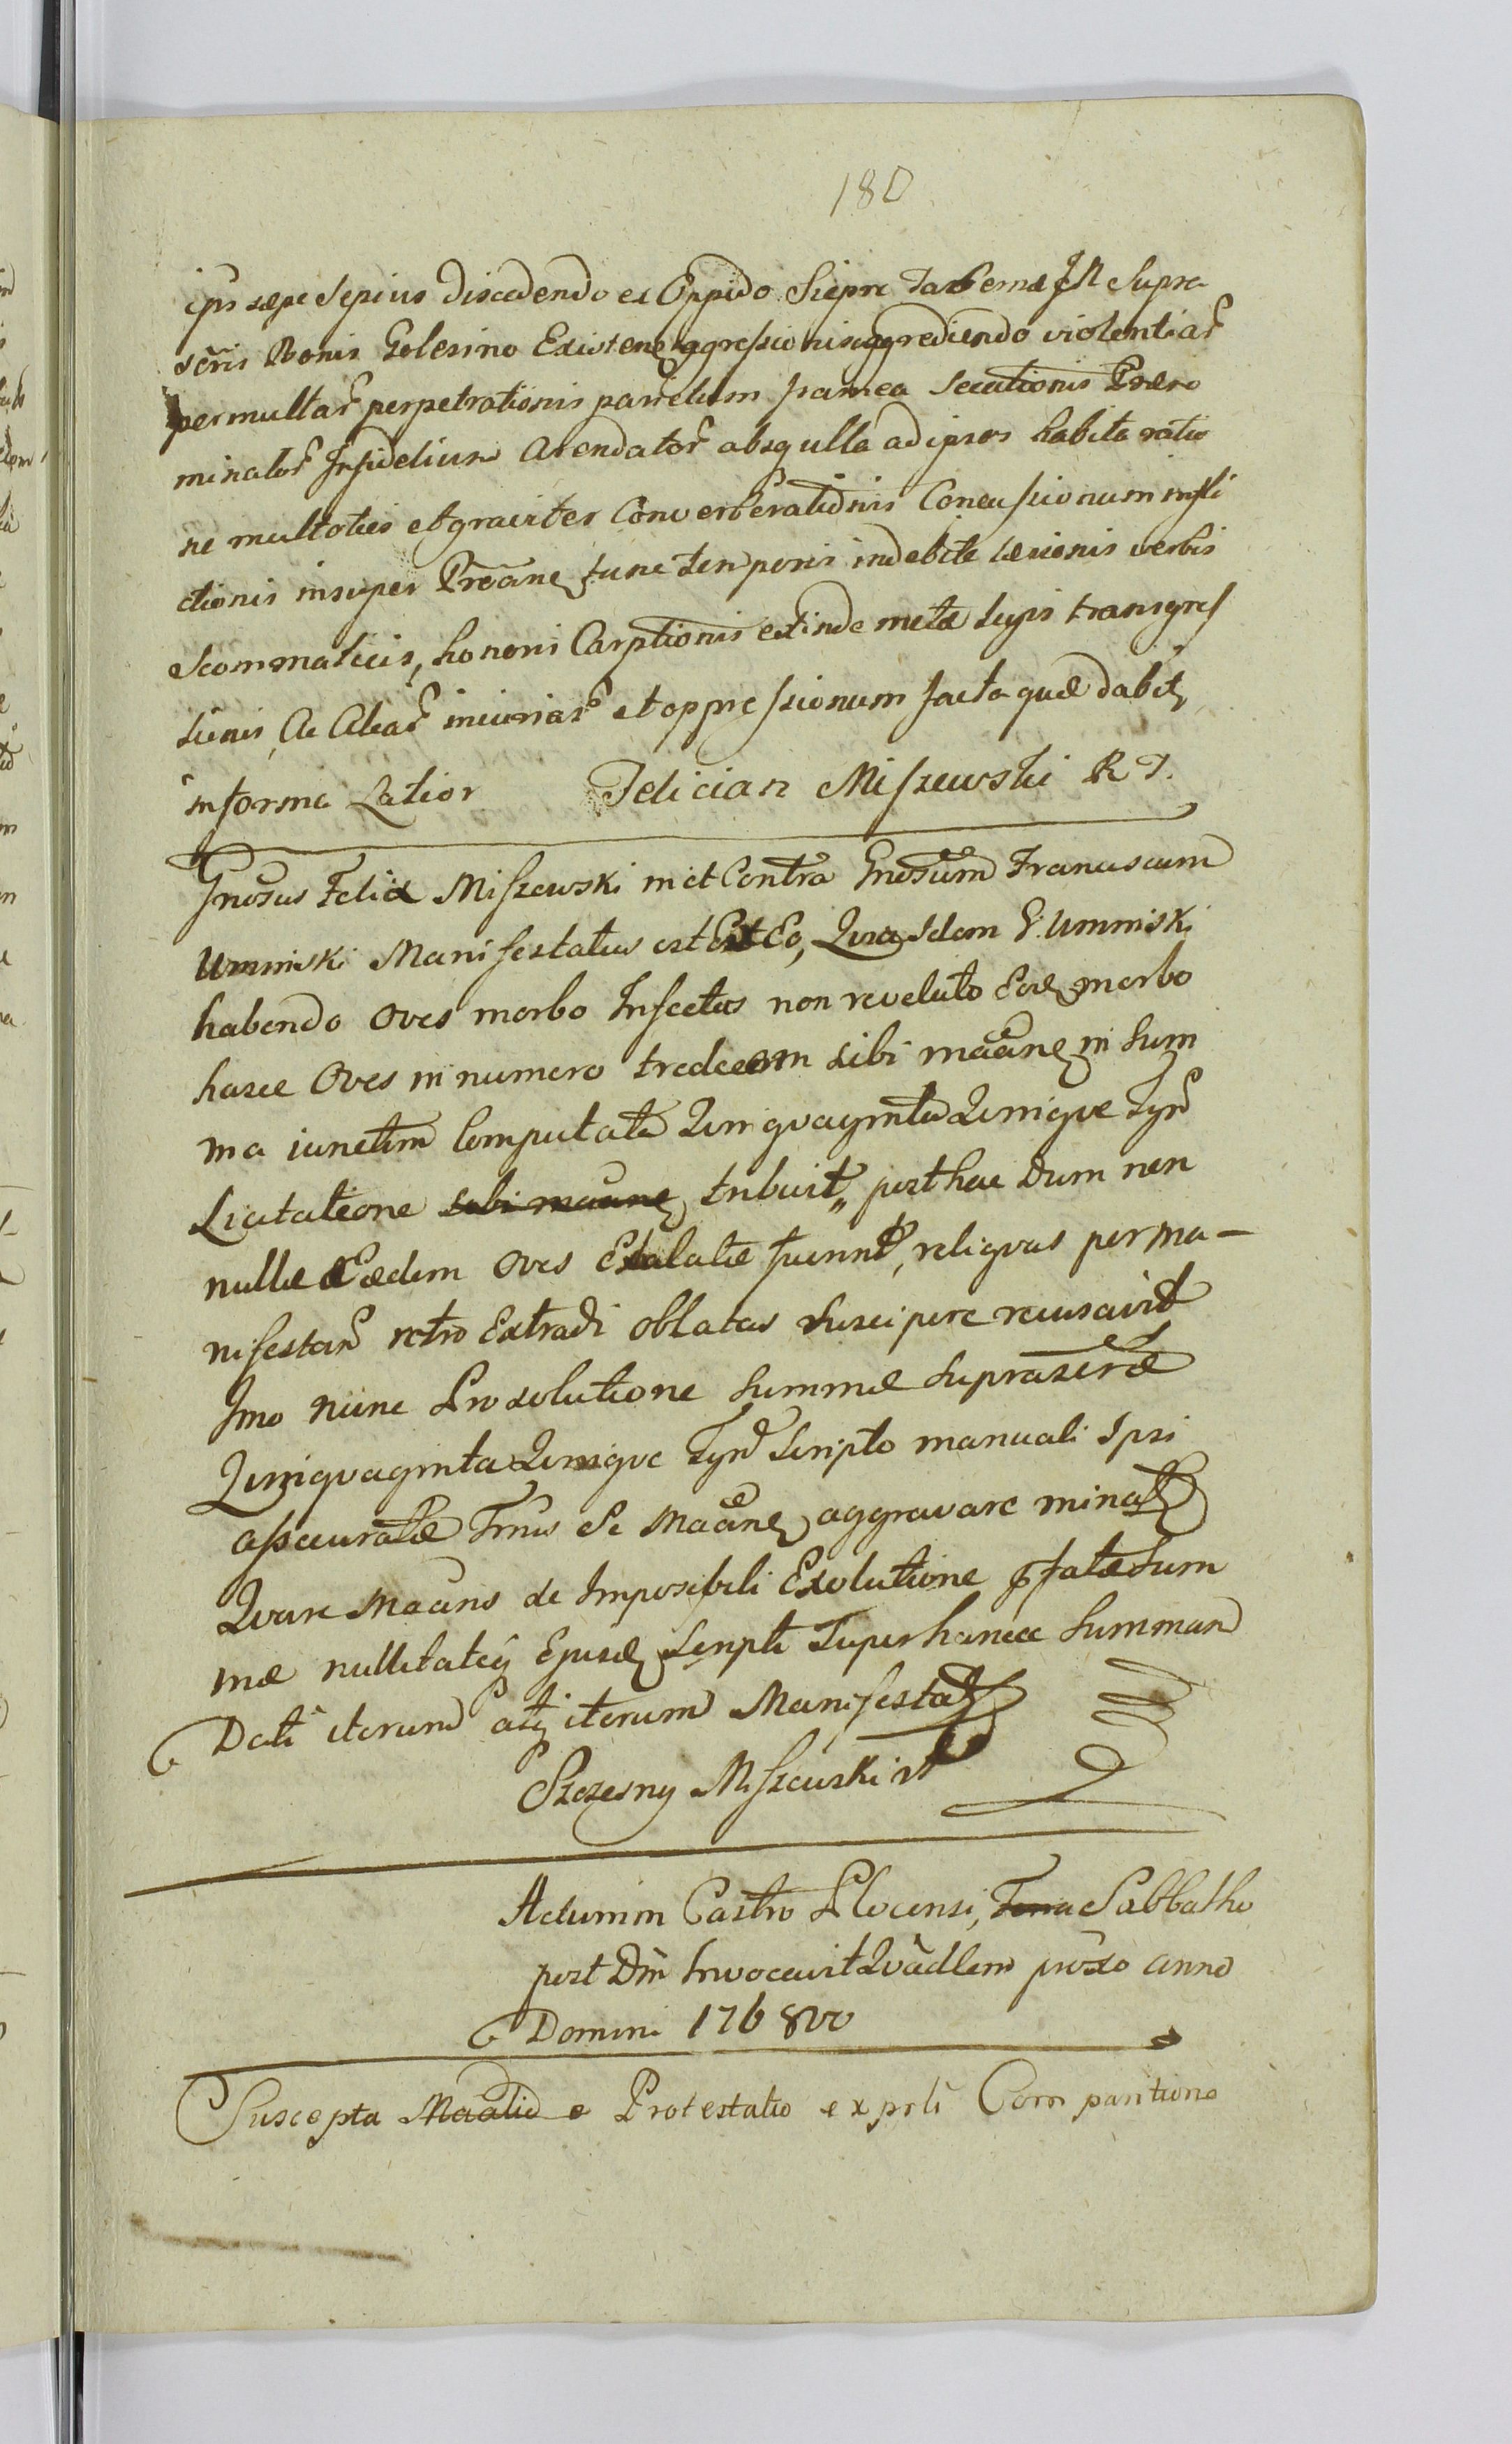 180
ipsi sæpe sepius discedendo ex Oppido Siepre Tabernæ in supra
scris Bonis Golesino Existen aggressionis aggrediendo violentiar
permultar perpetrationis parietum framea secationis Præno
minator Infidelium Arendator absq ulla ad ipsos habita ratio
ne multoties et graviter Converberationis Concussionum infli
ctionis insuper Protane tunc temporis indebite læsionis verbis
scommaticis, honoris Carptionis exinde metæ legis transgres
sionis, Ac Aliar iniuriar et oppressionum facta quæ dabit
in forma Latior Felician Miszewski R T.
Gnosus Felix Miszewski in et Contra Gnosum Franciscum
Umminski Manifestatus est Ex Eo, Quia Idem G. Umminski
habendo Oves morbo Infectas non revelato Eod morbo
hasce Oves in numero tredecem sibi maane in sum
ma iunctim computata Quinquaginta Quinque Tyn
Licitatione sibi maane tribuit, post hac dum non
nullæ Eædem Oves Exalatæ fuerint, reliquas per ma-
nifestan retro Extradi oblatas suscipere recusavit
Imo nunc Pro solutione summæ suprascræ
Quinquaginta Quinque Tyn Scripto manuali Ipsi
assecuratæ Tmis se Maane aggravare minat
Quare Maans de Imposibili Exolutione pfatæ sum
mæ nullitateq Ejusd Scripti Super hancce summam
Dati iterum atq iterum Manifestat
Szczesny Miszewski
Actum in Castro Plocensi, Feria Sabbatho
post Dm Invocavit Quadlem proxo anno
Domini 1768vo
Suscepta Maatio e Protestatio ex prli Comparitione